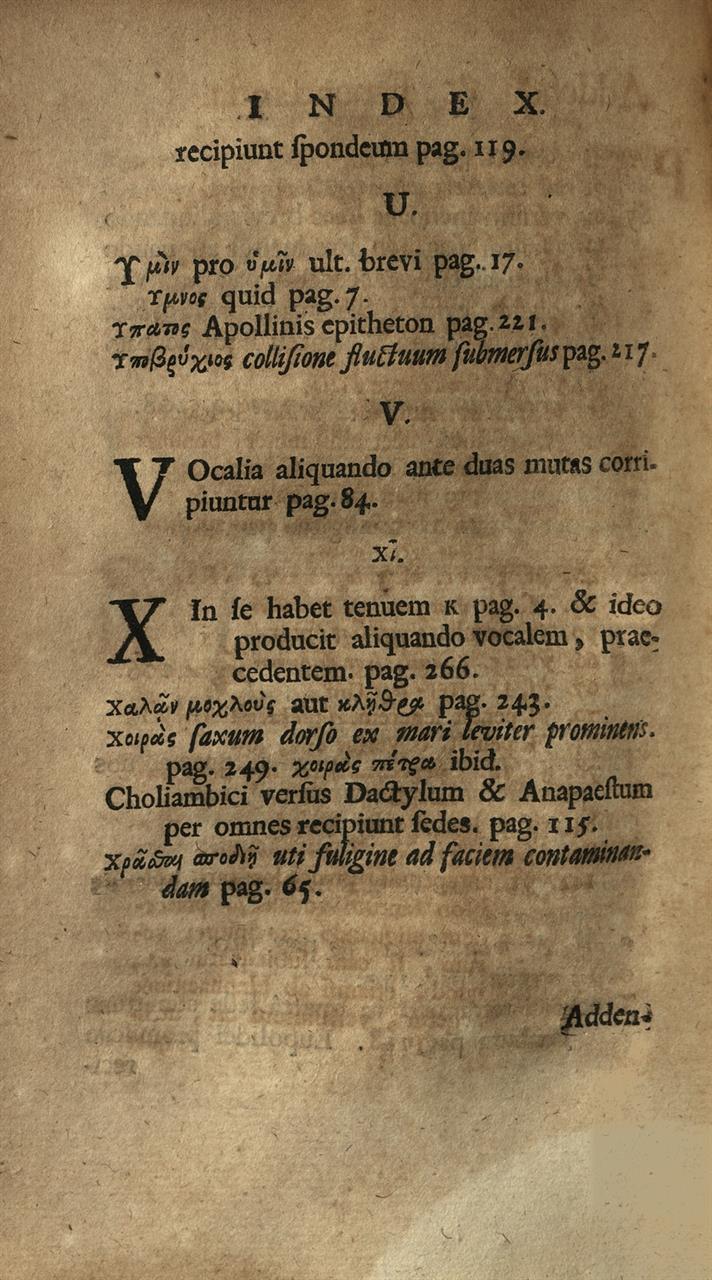 INDEX.
recipiunt ſpondeum pag. 119.
U.
Υμὶν pro ὑμῖν ult. brevi pag. 17.
Υμνος quid pag. 7.
Υπατος Apollinis epitheton pag. 221.
Υποβρύχιος colliſione fluctuum ſubmerſus pag. 217.
V.
VOcalia aliquando ante duas mutas corri-
piuntur pag. 84.
Xῖ.
X In ſe habet tenuem κ pag. 4. & ideo
producit aliquando vocalem, prae-
cedentem. pag. 266.
Χαλᾶν μοχλοὺς aut κλῇθρα pag. 243.
Χοιρὰς ſaxum dorſo ex mari leviter prominens.
pag. 249. χοιρὰς πέτρα ibid.
Choliambici verſus Dactylum & Anapaeſtum
per omnes recipiunt ſedes. pag. 115.
Χρᾶσθαι σποδιῇ uti fuligine ad faciem contaminan-
dam pag. 65.
Adden-